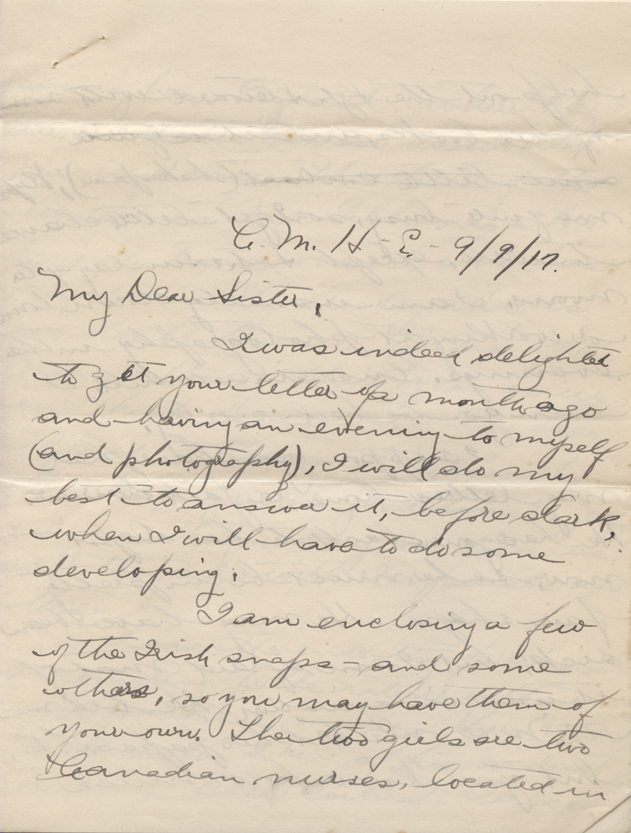 C. M. H - E - 9/9/17.
My Dear Sister,
I was indeed delighted
to get your letter of a month ago
and having an evening to myself
(and photography), I will do my
best to answer it, before dark,
when I will have to do some
developing.
I am enclosing a few
of the Irish snaps - and some
others, so you may have them of
your own. The two girls are two
Canadian nurses, located in